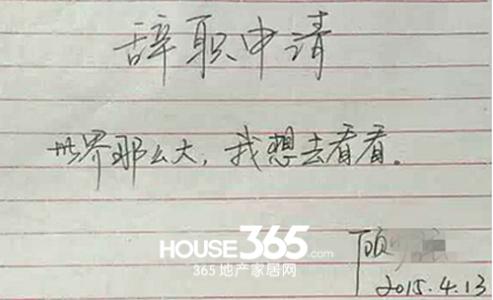 辞职申请
世界那么大，我想去看看。
HOUSE365.com
365地产家居网
顾
2015.4.13